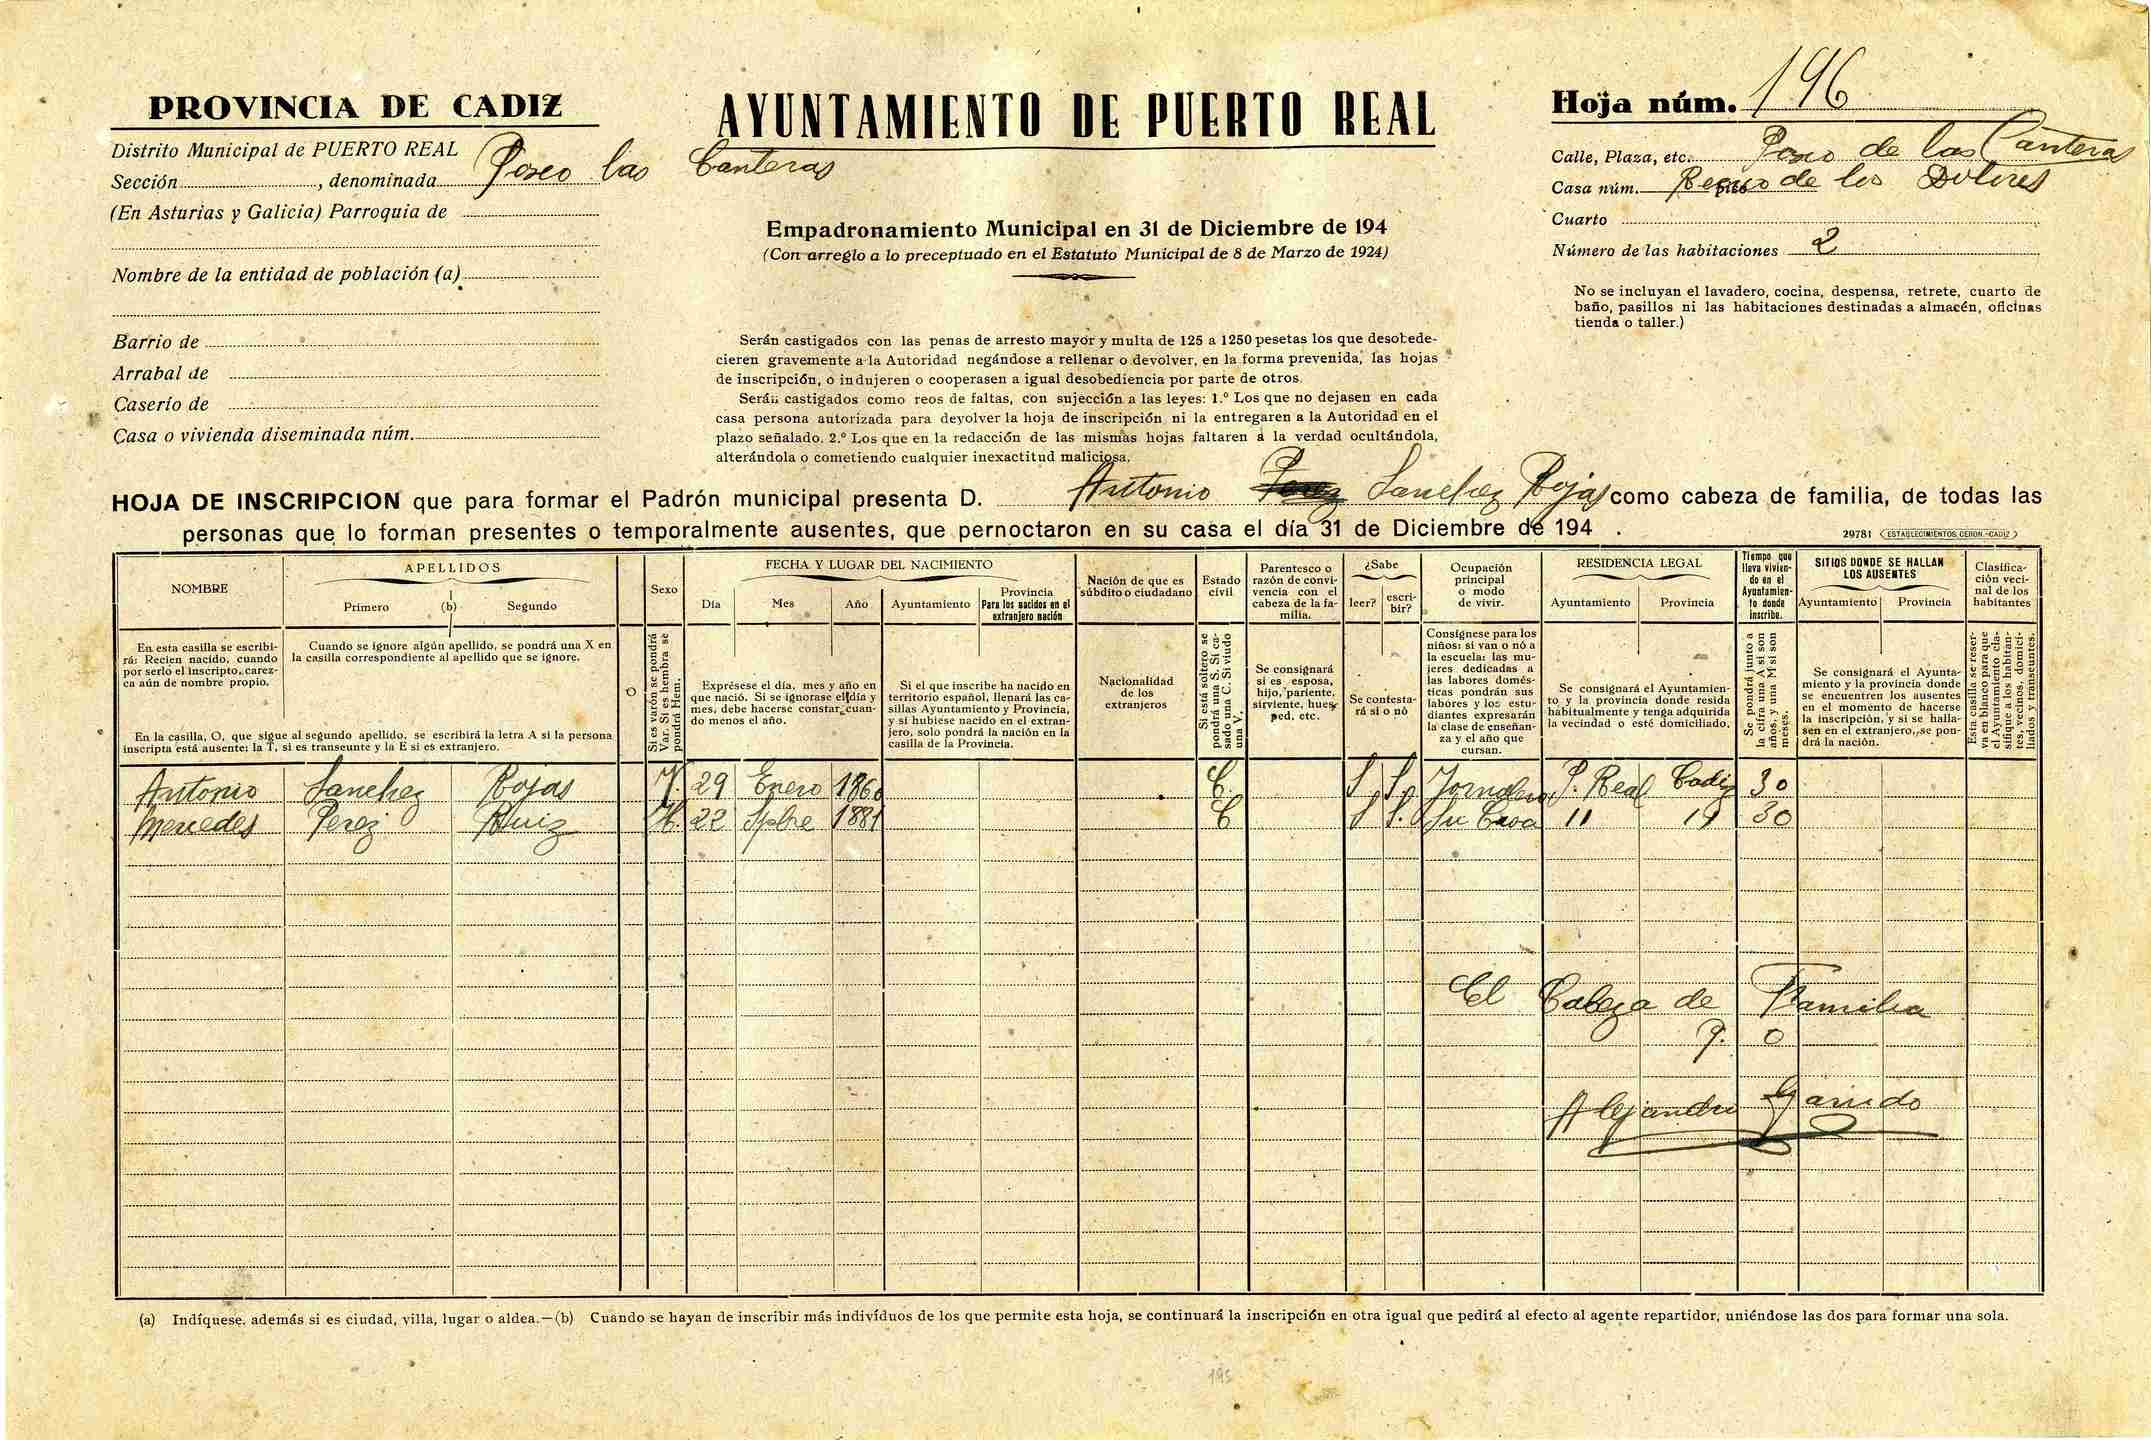 PROVINCIA DE CADIZ
AYUNTAMIENTO DE PUERTO REAL
Hoja núm. 196
Distrito Municipal de PUERTO REAL
Sección , denominada Paseo las Canteras
(En Asturias y Galicia) Parroquia de
Nombre de la entidad de población (a)
Barrio de
Arrabal de
Caserío de
Casa o vivienda diseminada núm.
Empadronamiento Municipal en 31 de Diciembre de 194
(Con arreglo a lo preceptuado en el Estatuto Municipal de 8 de Marzo de 1924)
Calle, Plaza, etc. Paseo de las Canteras
Casa núm. piso de los Dolores
Cuarto
Número de las habitaciones 2
No se incluyan el lavadero, cocina, despensa, retrete, cuarto de
baño, pasillos ni las habitaciones destinadas a almacén, oficinas
tienda o taller.)
Serán castigados con las penas de arresto mayor y multa de 125 a 1250 pesetas los que desobede-
cieren gravemente a la Autoridad negándose a rellenar o devolver, en la forma prevenida, las hojas
de inscripción, o indujeren o cooperasen a igual desobediencia por parte de otros.
Serán castigados como reos de faltas, con sujección a las leyes: 1.º Los que no dejasen en cada
casa persona autorizada para devolver la hoja de inscripción ni la entregaren a la Autoridad en el
plazo señalado. 2.º Los que en la redacción de las mismas hojas faltaren a la verdad ocultándola,
alterándola o cometiendo cualquier inexactitud maliciosa.
HOJA DE INSCRIPCION que para formar el Padrón municipal presenta D. Antonio Perez Sanchez Rojas como cabeza de familia, de todas las
personas que lo forman presentes o temporalmente ausentes, que pernoctaron en su casa el día 31 de Diciembre de 194 .
29781 (ESTABLECIMIENTOS CERON.-CADIZ)
NOMBRE
En esta casilla se escribi-
rá: Recien nacido, cuando
por serlo el inscripto, carez-
ca aún de nombre propio.
APELLIDOS
Primero (b) Segundo
Cuando se ignore algún apellido, se pondrá una X en
la casilla correspondiente al apellido que se ignore.
En la casilla, O, que sigue al segundo apellido, se escribirá la letra A si la persona
inscripta está ausente; la T, si es transeunte y la E si es extranjero.
O
Sexo
Si es varón se pondrá
Var. Si es hembra se
pondrá Hem.
FECHA Y LUGAR DEL NACIMIENTO
Día Mes Año Ayuntamiento
Provincia
Para los nacidos en el
extranjero nación
Exprésese el día, mes y año en
que nació. Si se ignorase el día y
mes, debe hacerse constar cuan-
do menos el año.
Si el que inscribe ha nacido en
territorio español, llenará las ca-
sillas Ayuntamiento y Provincia,
y si hubiese nacido en el extran-
jero, solo pondrá la nación en la
casilla de la Provincia.
Nación de que es
súbdito o ciudadano
Nacionalidad
de los
extranjeros
Estado
civil
Si está soltero se
pondrá una S. Si ca-
sado una C. Si viudo
una V.
Parentesco o
razón de convi-
vencia con el
cabeza de la fa-
milia.
Se consignará
si es esposa,
hijo, pariente,
sirviente, hues-
ped, etc.
¿Sabe
leer? escri-
bir?
Se contesta-
rá si o nó
Ocupación
principal
o modo
de vivir.
Consígnese para los
niños: si van o nó a
la escuela; las mu-
jeres dedicadas a
las labores domés-
ticas pondrán sus
labores y los estu-
diantes expresarán
la clase de enseñan-
za y el año que
cursan.
RESIDENCIA LEGAL
Ayuntamiento Provincia
Se consignará el Ayuntamien-
to y la provincia donde resida
habitualmente y tenga adquirida
la vecindad o esté domiciliado.
Tiempo que
lleva vivien-
do en el
Ayuntamien-
to donde
inscribe.
Se pondrá junto a
la cifra una A si son
años, y una M si son
meses.
SITIOS DONDE SE HALLAN
LOS AUSENTES
Ayuntamiento Provincia
Se consignará el Ayunta-
miento y la provincia donde
se encuentren los ausentes
en el momento de hacerse
la inscripción, y si se halla-
sen en el extranjero, se pon-
drá la nación.
Clasifica-
ción veci-
nal de los
habitantes
Esta casilla se reser-
va en blanco para que
el Ayuntamiento cla-
sifique a los habitan-
tes, vecinos, domici-
liados y transeuntes.
Antonio Sanchez Rojas V. 29 Enero 1860 C. S S. Jornalero P. Real Cadiz 30
Mercedes Perez Ruiz H. 22 Spbre 1881 C S S. Su Casa 11 19 30
El Cabeza de Familia
P. O
Alejandro Garrido
(a) Indíquese, además si es ciudad, villa, lugar o aldea.—(b) Cuando se hayan de inscribir más indivíduos de los que permite esta hoja, se continuará la inscripción en otra igual que pedirá al efecto al agente repartidor, uniéndose las dos para formar una sola.
195